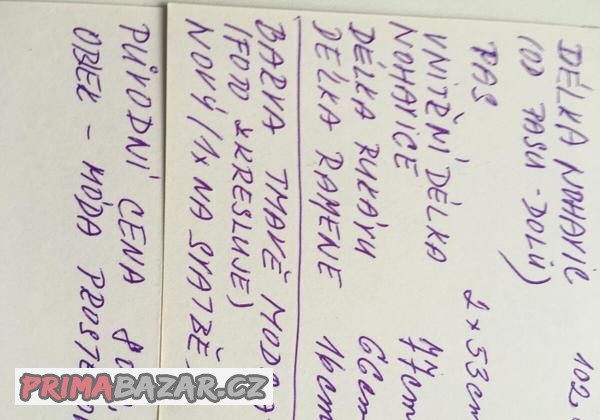 DÉLKA NOHAVIC 102
(OD PASU - DOLŮ)
PAS 2 x 53cm
VNITŘNÍ DÉLKA 77cm
NOHAVICE
DÉLKA RUKÁVU 66cm
DÉLKA RAMENE 16cm
BARVA TMAVĚ MODRÁ
(FOTO ZKRESLUJE)
NOVÝ / 1x NA SVATBĚ
PŮVODNÍ CENA
OBEK - MÓDA
PRIMABAZAR.CZ